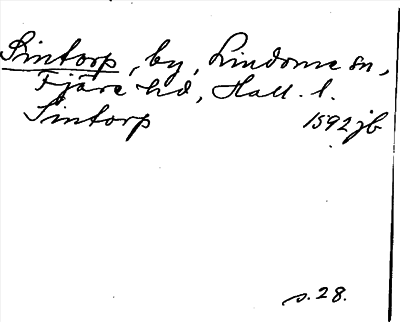 Sintorp, by, Lindome sn,
Fjäre hd, Hall. l.
Sintorp 1592 jb
s. 28.